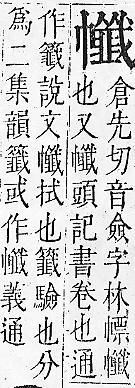 㡨倉先切音僉字林幖㡨
也又㡨頭記書卷也通
作籤說文㡨拭也籤驗也分
爲二集韻籤或作㡨義通